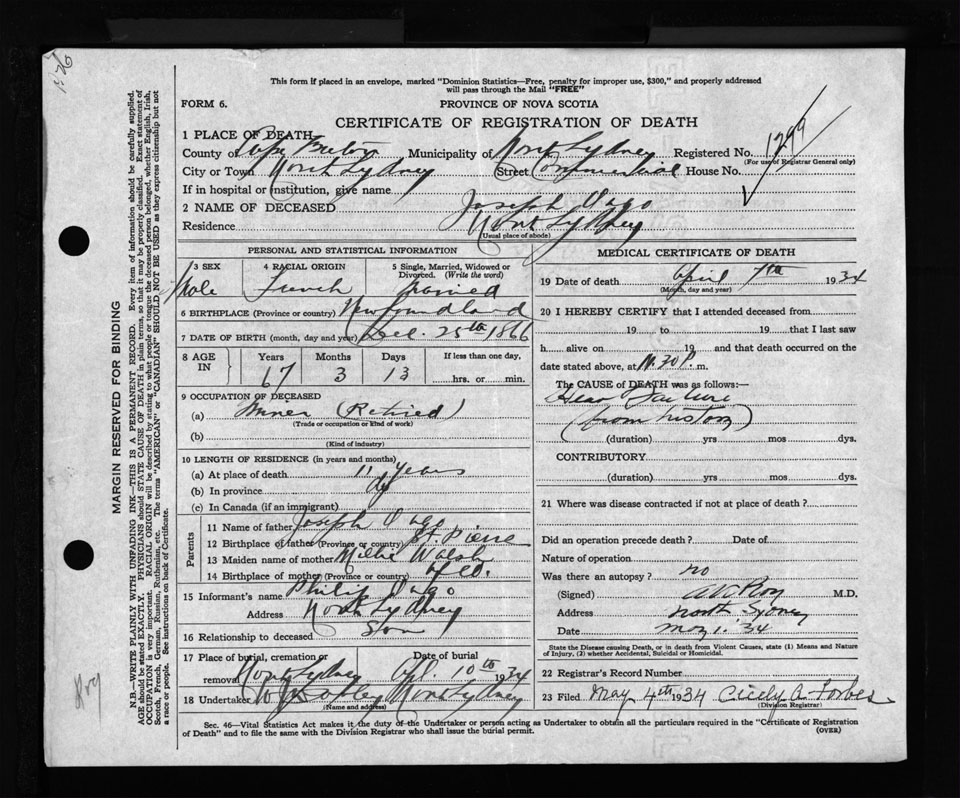 This form if placed in an envelope, marked "Dominion Statistics—Free, penalty for improper use, $300," and properly addressed
will pass through the Mail "FREE"
FORM 6.
PROVINCE OF NOVA SCOTIA
CERTIFICATE OF REGISTRATION OF DEATH
1299
1 PLACE OF DEATH
County of Cape Breton Municipality of North Sydney Registered No.
(For use of Registrar General only)
City or Town North Sydney Street Commercial House No.
If in hospital or institution, give name
2 NAME OF DECEASED Joseph
Residence North Sydney
(Usual place of abode)
PERSONAL AND STATISTICAL INFORMATION
3 SEX 4 RACIAL ORIGIN 5 Single, Married, Widowed or
Divorced. (Write the word)
Male French Married
6 BIRTHPLACE (Province or country) Newfoundland
7 DATE OF BIRTH (month, day and year) Dec. 25th 1866
8 AGE IN Years Months Days If less than one day,
67 3 13 hrs. or min.
9 OCCUPATION OF DECEASED
(a) Miner (Retired)
(Trade or occupation or kind of work)
(b)
(Kind of industry)
10 LENGTH OF RESIDENCE (in years and months)
(a) At place of death 11 Years
(b) In province
(c) In Canada (if an immigrant)
Parents
11 Name of father Joseph
12 Birthplace of father (Province or country) St. Pierre
13 Maiden name of mother Millie Walsh
14 Birthplace of mother (Province or country)
15 Informant's name Philip
Address North Sydney
16 Relationship to deceased Son
17 Place of burial, cremation or Date of burial
removal North Sydney Apl. 10th 1934
18 Undertaker North Sydney
(Name and address)
MEDICAL CERTIFICATE OF DEATH
19 Date of death April 7th 1934
(Month, day and year)
20 I HEREBY CERTIFY that I attended deceased from
19 to 19 that I last saw
h alive on 19 and that death occurred on the
date stated above, at 11.30 P. m.
The CAUSE of DEATH was as follows:—
Heart Failure
(from history)
(duration) yrs mos dys.
CONTRIBUTORY
(duration) yrs mos dys.
21 Where was disease contracted if not at place of death?
Did an operation precede death? Date of
Nature of operation
Was there an autopsy? no
(Signed) M.D.
Address North Sydney
Date May 1. '34
State the Disease causing Death, or in death from Violent Causes, state (1) Means and Nature
of Injury, (2) whether Accidental, Suicidal or Homicidal.
22 Registrar's Record Number
23 Filed May 4th 1934 Cicely A. Forbes
(Division Registrar)
Sec. 46—Vital Statistics Act makes it the duty of the Undertaker or person acting as Undertaker to obtain all the particulars required in the "Certificate of Registration
of Death" and to file the same with the Division Registrar who shall issue the burial permit.
(OVER)
MARGIN RESERVED FOR BINDING
N.B.—WRITE PLAINLY WITH UNFADING INK—THIS IS A PERMANENT RECORD. Every item of information should be carefully supplied.
AGE should be stated EXACTLY. PHYSICIANS should STATE CAUSE OF DEATH in plain terms, so that it may be properly classified. Exact statement of
OCCUPATION is very important. RACIAL ORIGIN will be described by stating to what people or tongue the deceased person belonged, whether English, Irish,
Scotch, French, German, Russian, Ruthenian, etc. The terms "AMERICAN" or "CANADIAN" SHOULD NOT BE USED as they express citizenship but not
a race or people. See instructions on back of Certificate.